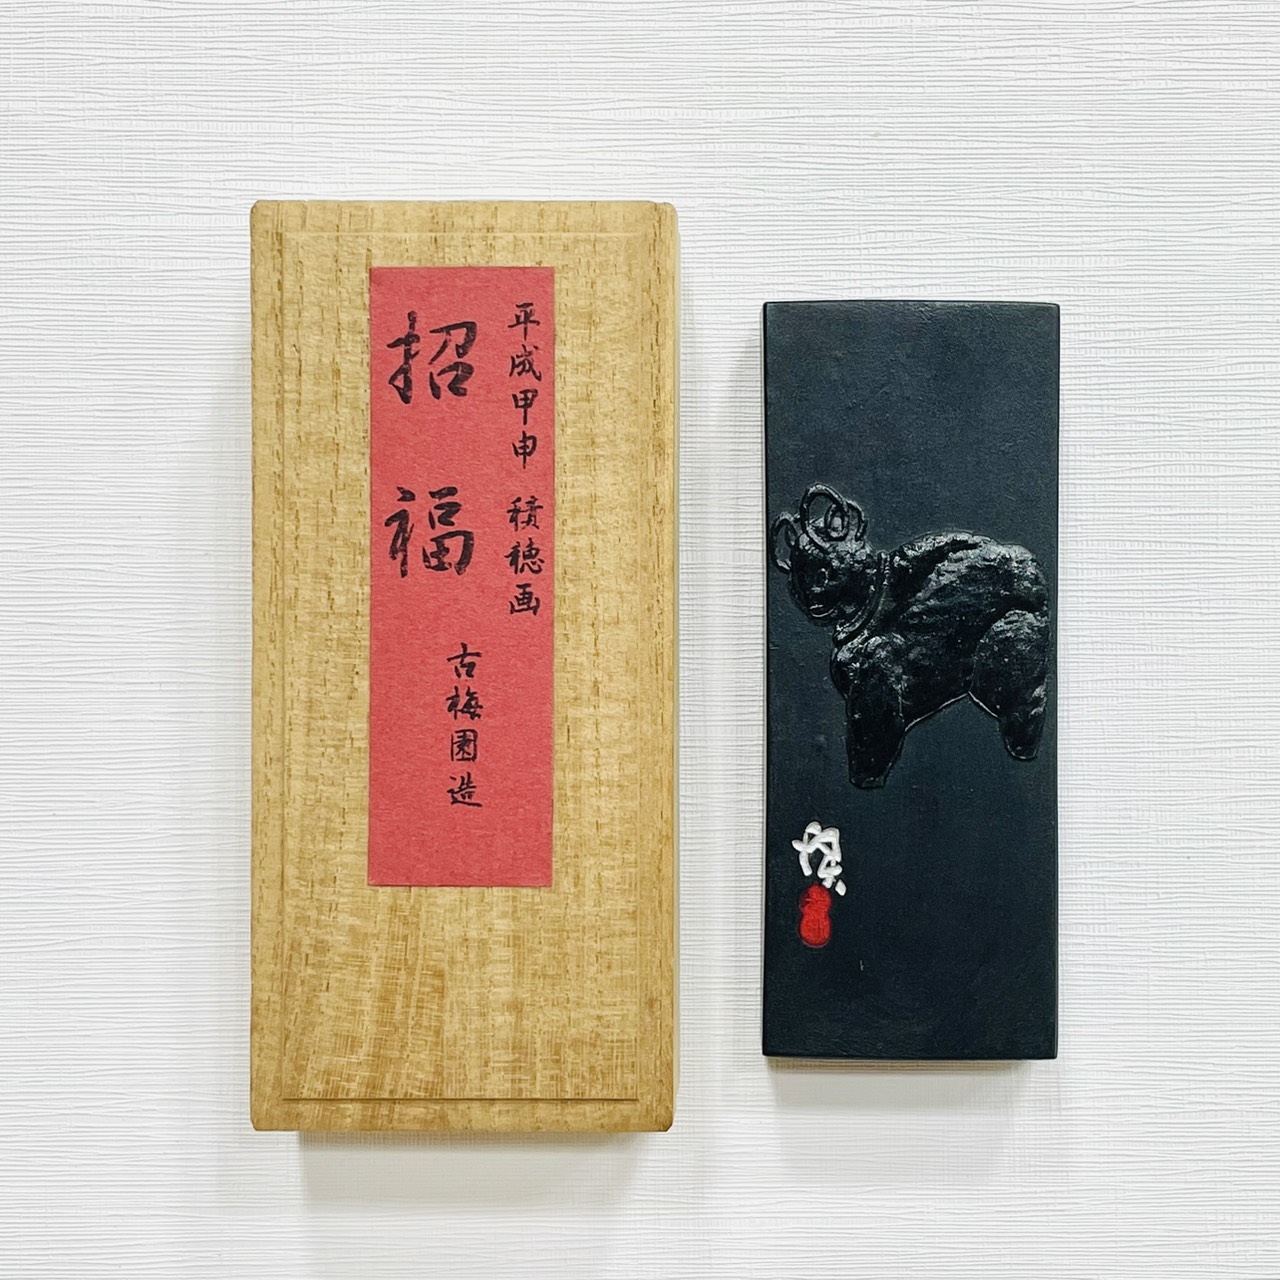 平成甲申 積穂画
招福
古梅園造